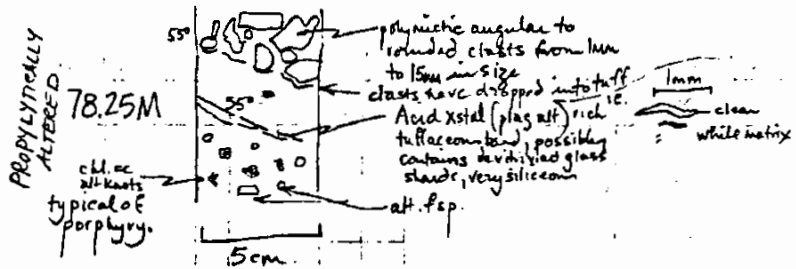 PROPYLYTICALLY
ALTERED
78.25M
55°
polymictic angular to
rounded clasts from 1mm
to 15mm in size
clasts have dropped into tuff
i.e.
55°
Acid xstal (plag alt) rich
tuffaceous band, possibly
contains devitrified glass
shards, very siliceous
1mm
clear
white matrix
chl. ±
alt knots
typical of
porphyry.
alt. fsp.
5cm